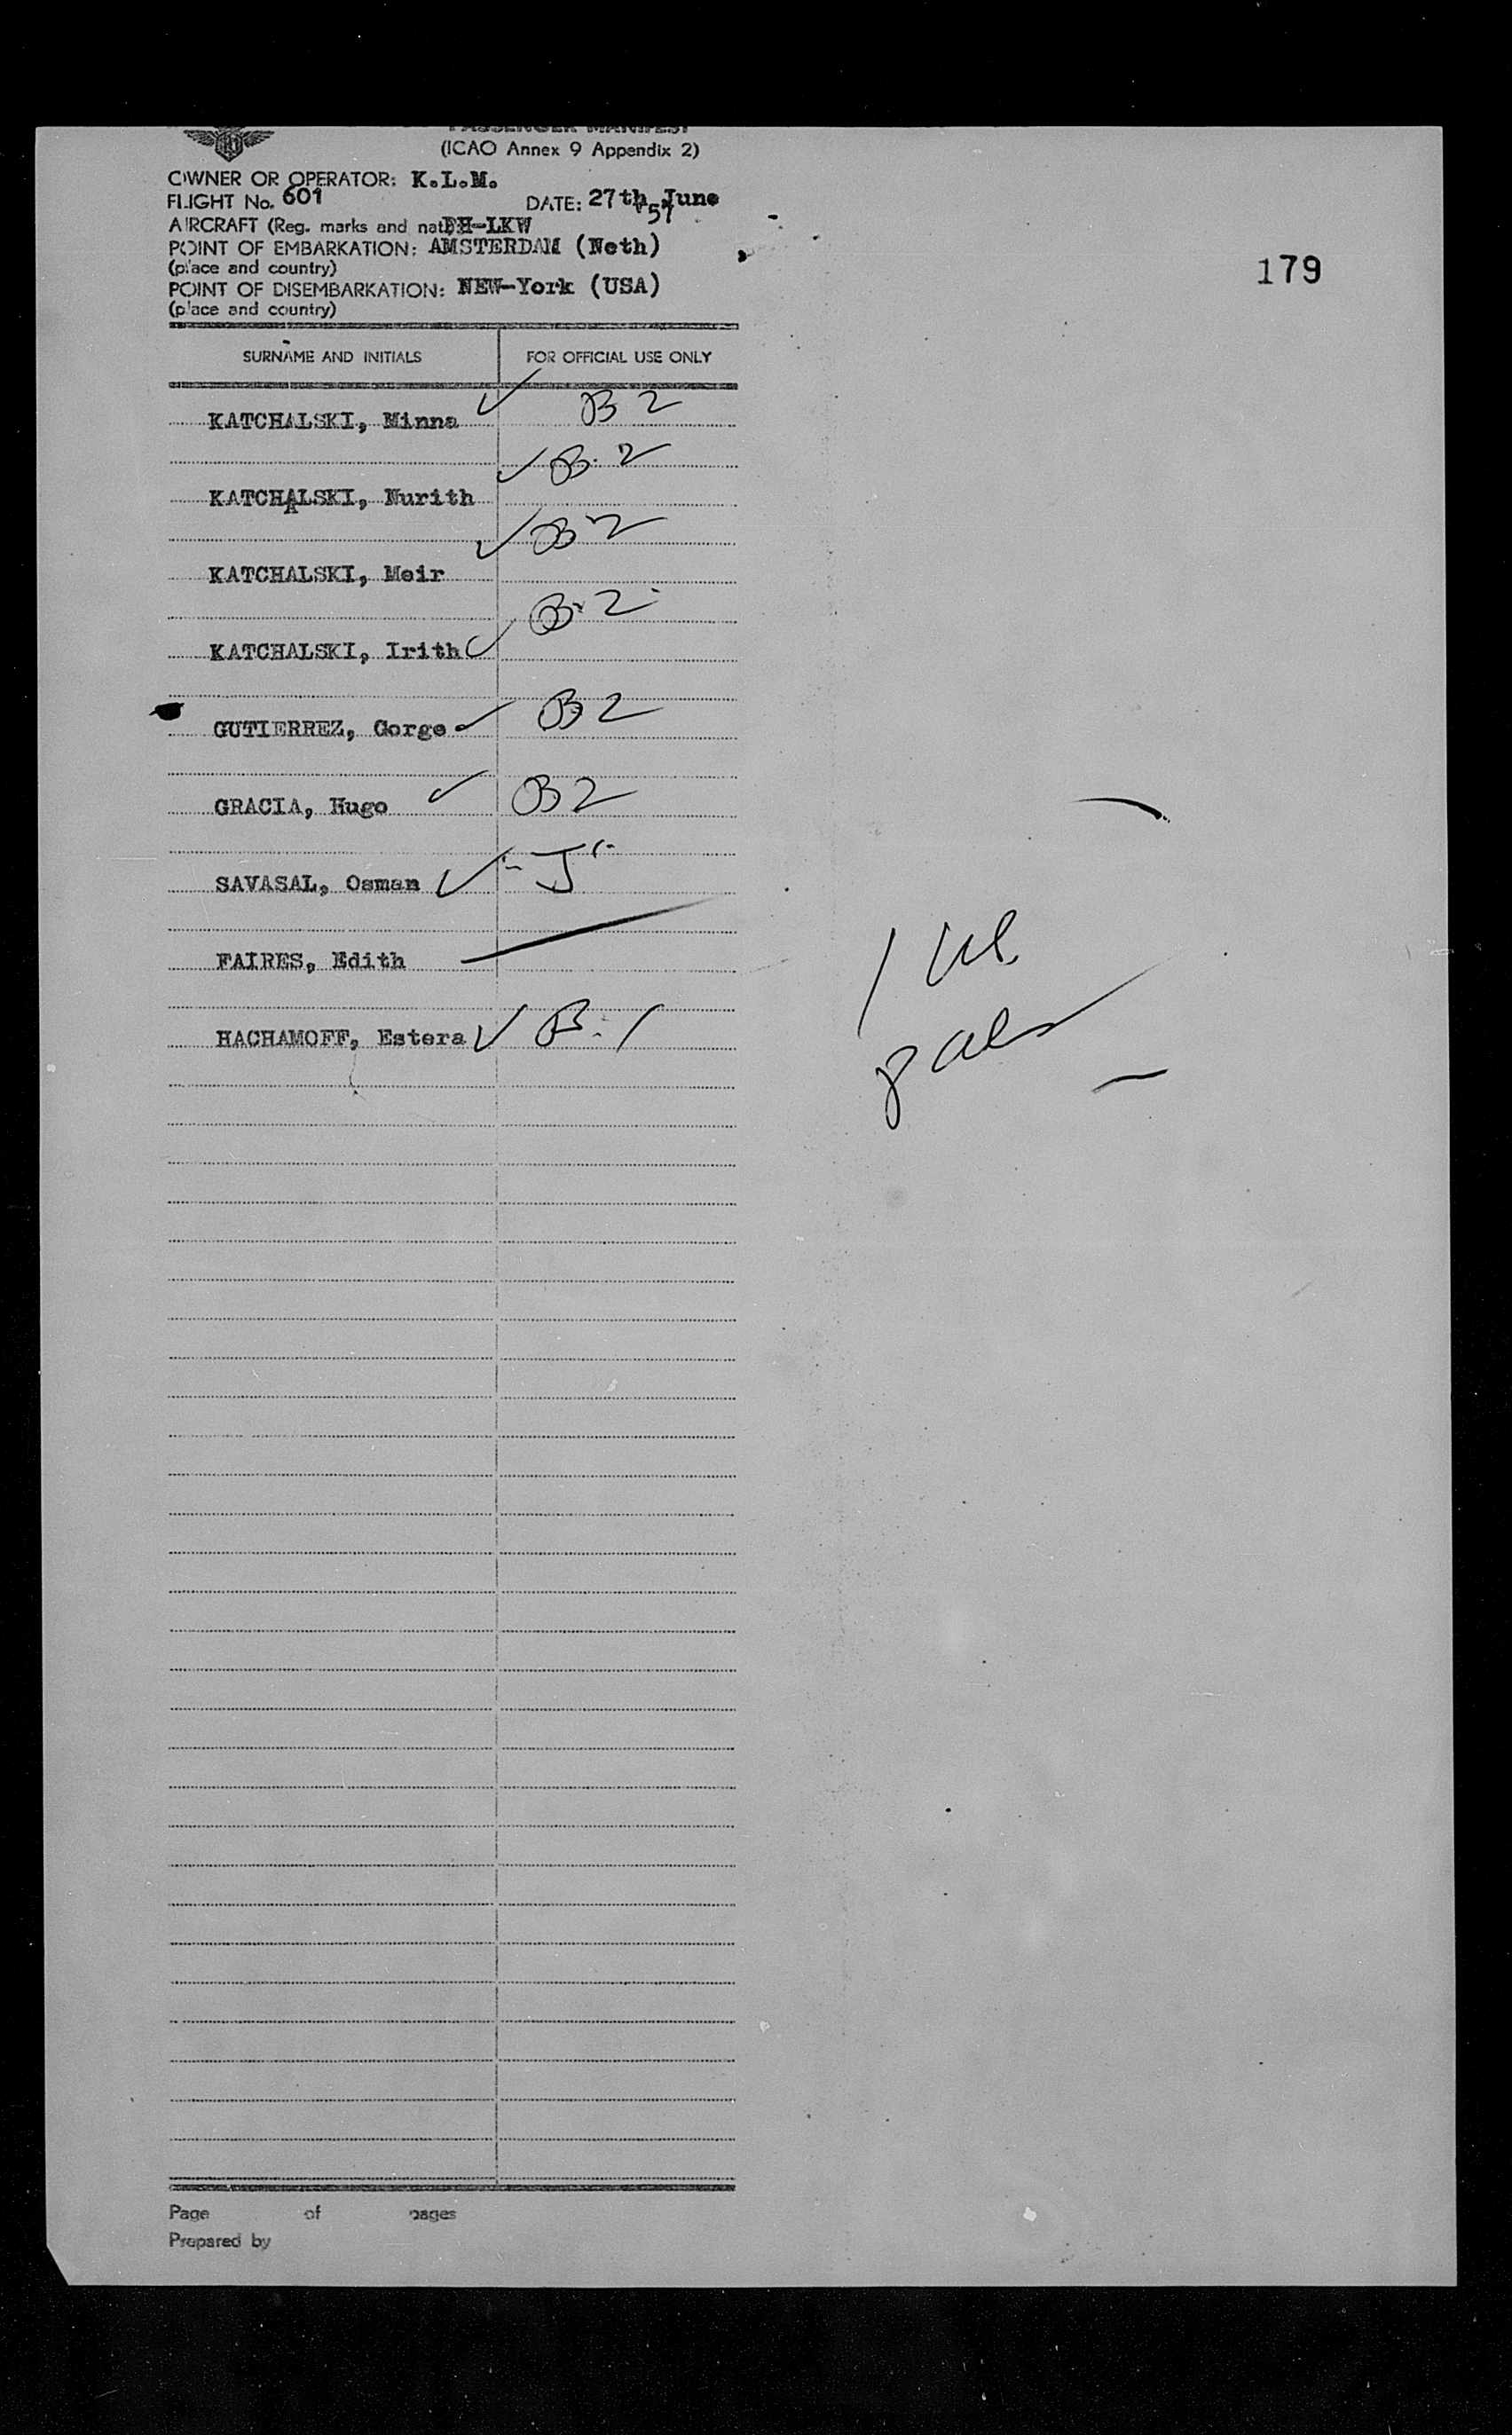 PASSENGER MANIFEST
(ICAO Annex 9 Appendix 2)
OWNER OR OPERATOR: K.L.M.
FLIGHT No. 601 DATE: 27th June
'57
AIRCRAFT (Reg. marks and nat.) PH-LKW
POINT OF EMBARKATION: AMSTERDAM (Neth)
(place and country)
179
POINT OF DISEMBARKATION: NEW-York (USA)
(place and country)
SURNAME AND INITIALS FOR OFFICIAL USE ONLY
KATCHALSKI, Minna ✓ B2
KATCHALSKI, Nurith ✓ B-2
KATCHALSKI, Meir ✓ B-2
KATCHALSKI, Irith ✓ B-2
GUTIERREZ, Gorge ✓ B2
GRACIA, Hugo ✓ B2
SAVASAL, Osman ✓ "J"
FAIRES, Edith
HACHAMOFF, Estera ✓ B-1
Page of pages
Prepared by